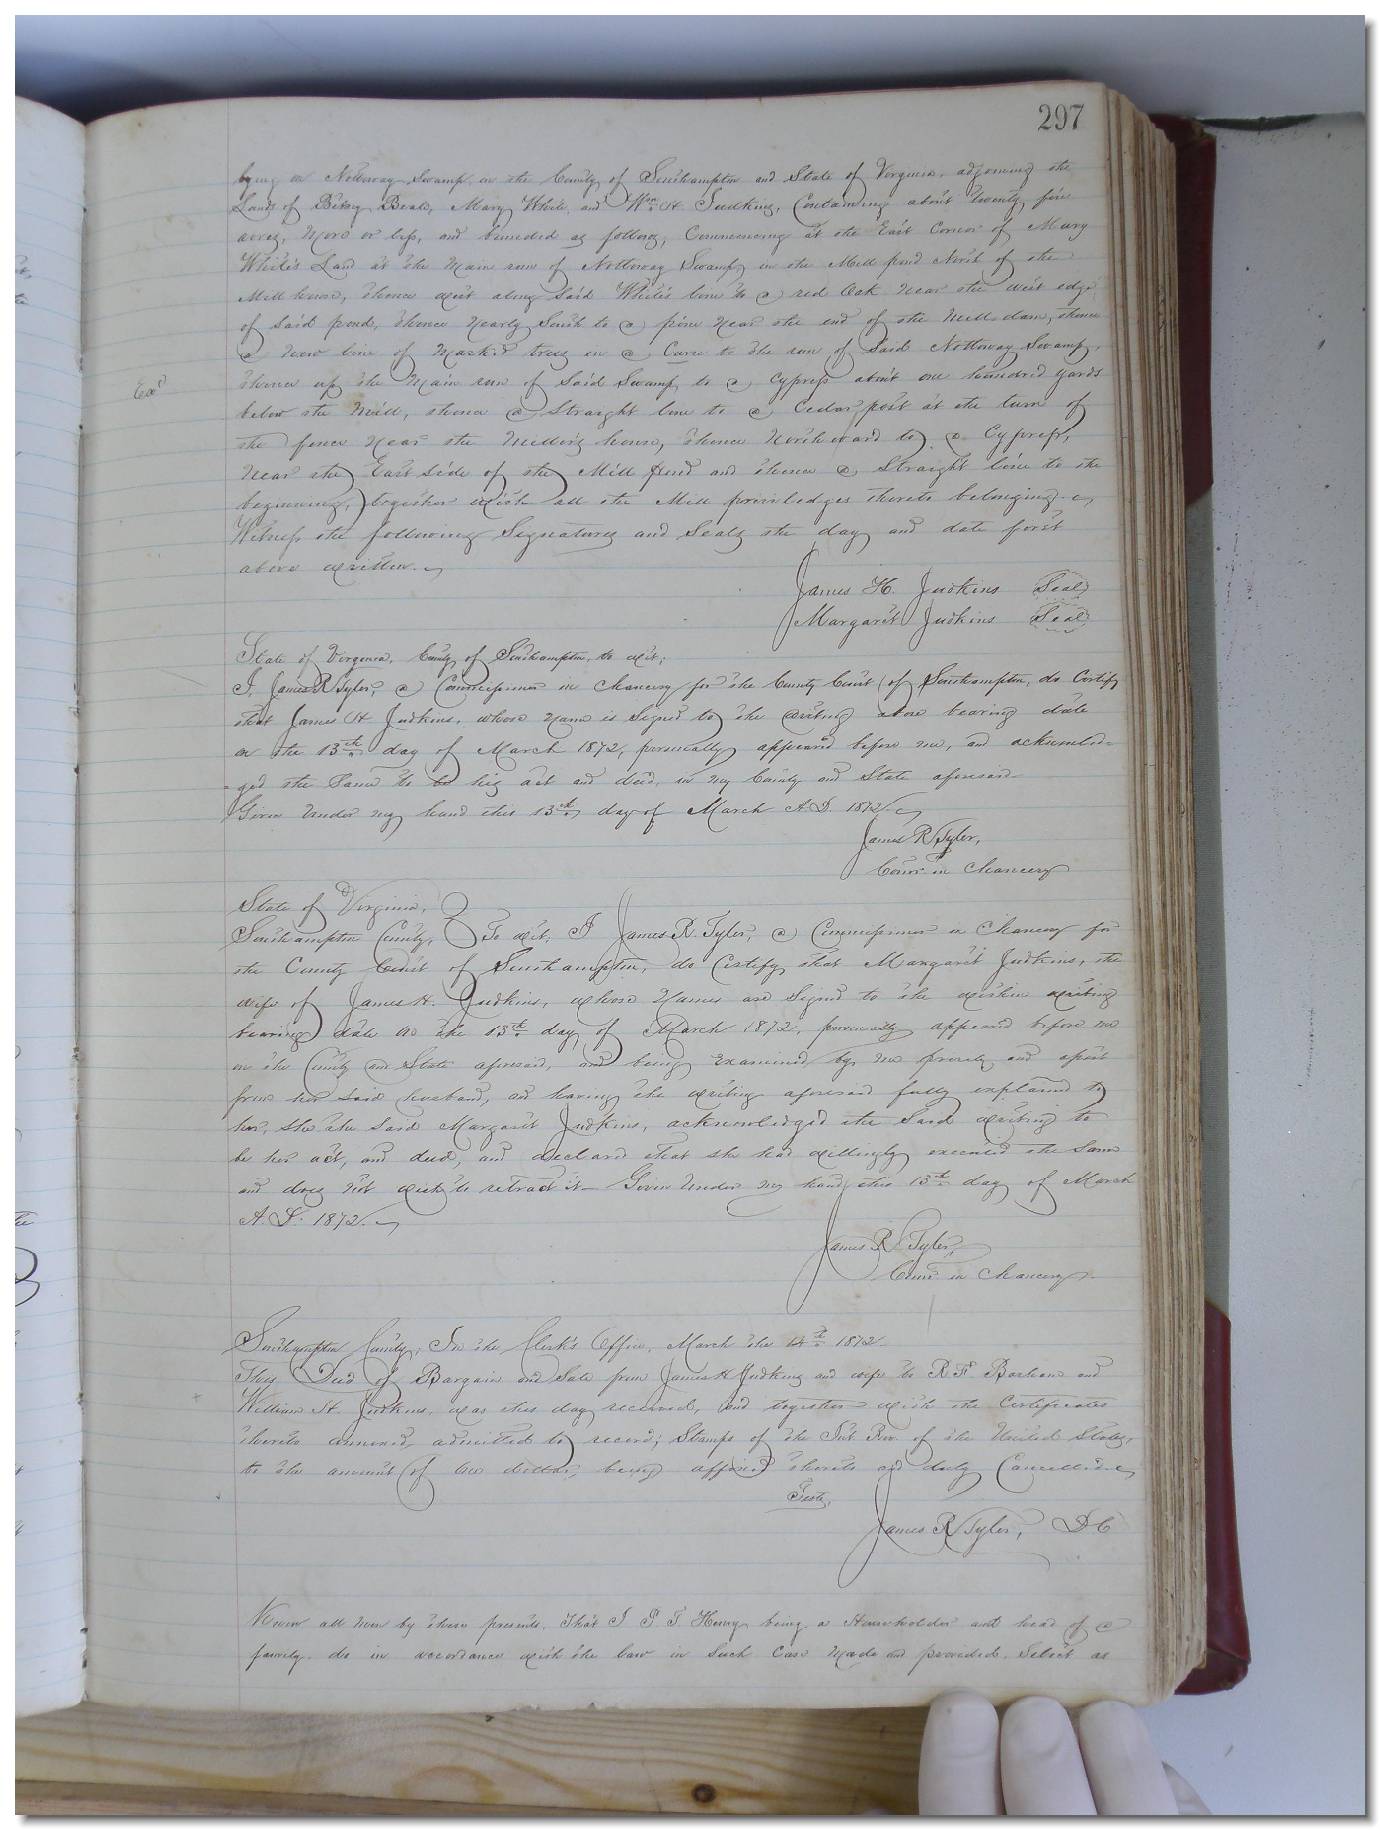 297
lying on Nottoway Swamp, in the County of Southampton and State of Virginia, adjoining the
Lands of Betsey Beale, Mary White, and Wm. H. Judkins, Containing about twenty five
acres, more or less, and bounded as follows, Commencing at the East Corner of Mary
White's Land at the Main run of Nottoway Swamp, in the Mill pond North of the
Mill house, thence west along said White's line to a red Oak near the west edge
of said pond, thence nearly South to a pine near the end of the Mill dam, thence
a new line of marked trees in a Curve to the run of said Nottoway Swamp,
Exd
thence up the Main run of said Swamp to a Cypress about one hundred yards
below the Mill, thence a Straight line to a Cedar post at the turn of
the fence near the Miller's house, thence Northward to a Cypress,
near the East side of the Mill pond and thence a Straight line to the
beginning, together with all the Mill priviledges thereto belonging.
Witness the following Signatures and Seals the day and date first
above written.
James H. Judkins Seal
Margaret Judkins Seal
State of Virginia, County of Southampton, to wit;
I, James R Tyler, a Commissioner in Chancery for the County Court of Southampton, do Certify
that James H Judkins, whose name is Signed to the writing above bearing date
on the 13th day of March 1872, personally appeared before me, and acknowled=
=ged the Same to be his act and deed, in my County and State aforesaid
Given Under my hand this 13th day of March A.D. 1872
James R Tyler,
Comr in Chancery
State of Virginia,
Southampton County, To wit, I James R. Tyler, a Commissioner in Chancery for
the County Court of Southampton, do Certify that Margaret Judkins, the
wife of James H. Judkins, whose Names are Signed to the within writing
bearing date on the 13th day of March 1872, personally appeared before me
in the County and State aforesaid, and being examined by me privily and apart
from her said husband, and having the writing aforesaid fully explained to
her, She the Said Margaret Judkins, acknowledged the Said writing to
be her act, and deed, and declared that she had willingly executed the Same
and does not wish to retract it Given Under my hand this 13th day of March
A.D. 1872.
James R Tyler,
Comr in Chancery
Southampton County, In the Clerk's Office, March the 14th 1872
This Deed of Bargain and Sale from James H Judkins and wife to R F Barham and
William H. Judkins, was this day received, and together with the Certificates
thereto annexed, admitted to record; Stamps of the Int Rev. of the United States,
to the amount of one dollar, being affixed thereto and duly Cancelled
Teste,
James R Tyler, D C
Know all men by these presents, That I P. T. Henry being a Householder and head of a
family do in accordance with the law in Such Case Made and provided, Select as